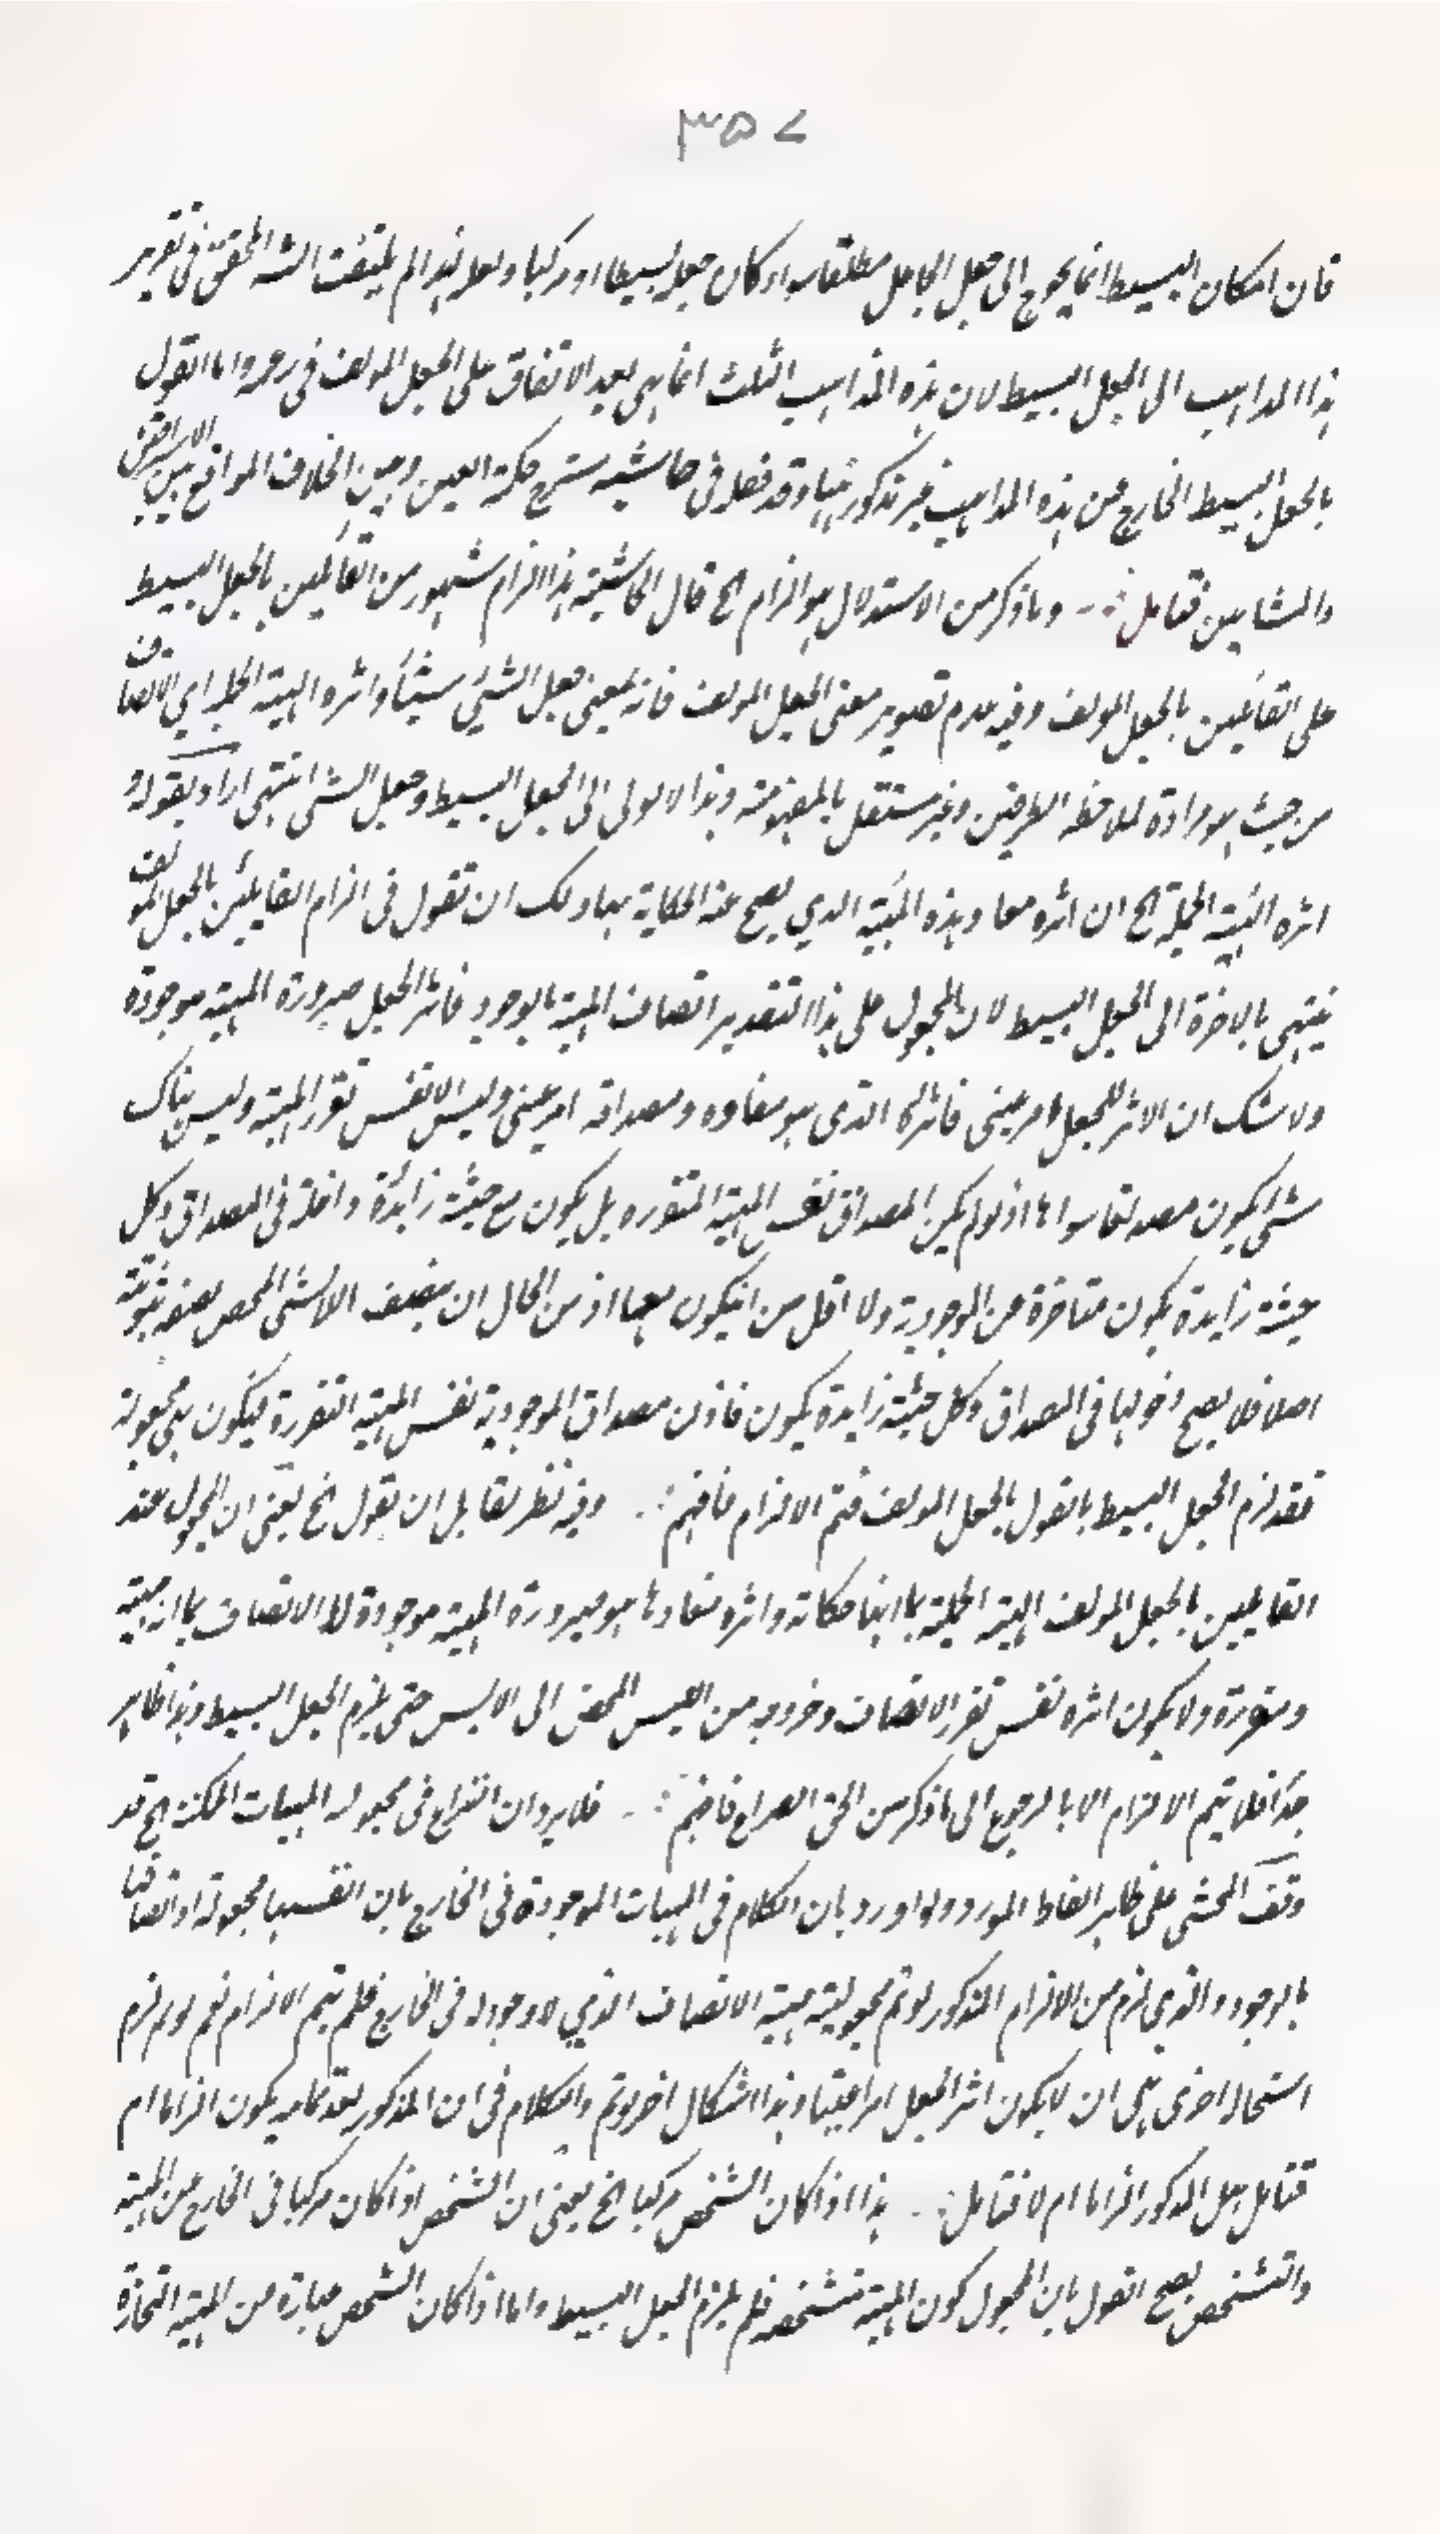 ٣٥٧
فان امكان البسيط انما يحوج الى جعل الجاعل مطلقا سواء كان جعلا بسيطا او مركبا ولعل لهذا لم يلتفت الشه المحقق في تقرير
هذا المذاهب الى الجعل البسيط لان هذه المذاهب الثلث انما هي بعد الاتفاق على الجعل المولف في زعمه واما القول
بالجعل البسيط الخارج عن هذه المذاهب فغير مذكور ههنا وقد فصل في حاشيه شرح حكمة العين وبين الخلاف الواقع بين الاشراقين
والمشايين فتامل وما ذكر من الاستدلال هو الزام الخ قال في الحاشية هذا الزام مشهور من القائلين بالجعل البسيط
على القائلين بالجعل المولف وفيه عدم تصوير معنى الجعل المولف فانه بمعنى جعل الشئ شيئا واثره الهيئة الحملية اي الاتصاف
من حيث هو مراة لملاحظة الطرفين وغير مستقل بالمفهومية وهذا لا يولى الى الجعل البسيط وجعل الشئ انتهى اراد بقوله
اثره الهيئة الحملية الخ ان اثره معا وهذه الهيئة الذي يصح عنه الحكاية بها ولك ان تقول في الزام القايلين بالجعل المولف
ينتهى بالاخرة الى الجعل البسيط لان المجعول على هذا التقدير اتصاف المهية بالوجود فاثر الجعل صيرورة المهية موجودة
ولا شك ان الاثر للجعل امر عينى فاثره الذى هو مفاده ومصداقه امر عينى وليس الا نفس تقرر المهية وليس هناك
شئ يكون مصداقا سواها اذ لو لم يكن المصداق نفس المهية المتقرره بل يكون مع حيثية زايدة داخلة فى المصداق وكل
حيثية زايدة يكون متاخرة عن الموجودية ولا اقل من ان يكون معها اذ من المحال ان يتصف اللاشئ المحض بصفة ثبوتية
اصلا فلا يصح دخولها فى المصداق وكل حيثية زايدة يكون فاذن مصداق الموجودية نفس المهية المتقررة فيكون هى مجعولة
فقد لزم الجعل البسيط بالقول بالجعل المولف فتم الالزام فافهم وفيه نظر لقايل ان يقول الخ يعنى ان المجعول عند
القايلين بالجعل المولف الهيئة الحملية بما انها حكاية واثره مفادها هو صيرورة المهية موجودة لا الاتصاف بما انه مهية
ومتقررة ولا يكون اثره نفس تقرر الاتصاف وخروجه من الليس المحض الى الايس حتى يلزم الجعل البسيط وهذا ظاهر
جدا فلا يتم الالزام الا بالرجوع الى ما ذكر من الحق الصراح فافهم فلا يرد ان النزاع فى مجعولية المهيات الممكنة الخ قد
وقف المحشى على ظاهر الفاظ المورد ولو اورد بان الكلام فى المهيات الموجودة فى الخارج بان انفسها مجعولة او اتصافها
بالوجود والذى لزم من الالزام المذكور لو تم مجعولية مهية الاتصاف الذي لا وجود له فى الخارج فلم يتم الالزام نعم لو لزم
استحالة اخرى هى ان لا يكون اثر الجعل امرا عينيا وهذا اشكال اخر لو تم والكلام فى ان المذكور بعد تمامه يكون الزاما ام
فتامل هل المذكور الزاما ام لا فتامل هذا اذا كان الشخص مركبا الخ يعنى ان الشخص اذا كان مركبا فى الخارج من المهية
والتشخص يصح القول بان المجعول كون المهية متشخصة فلم يلزم الجعل البسيط واما اذا كان الشخص عبارة عن المهية المتحازة